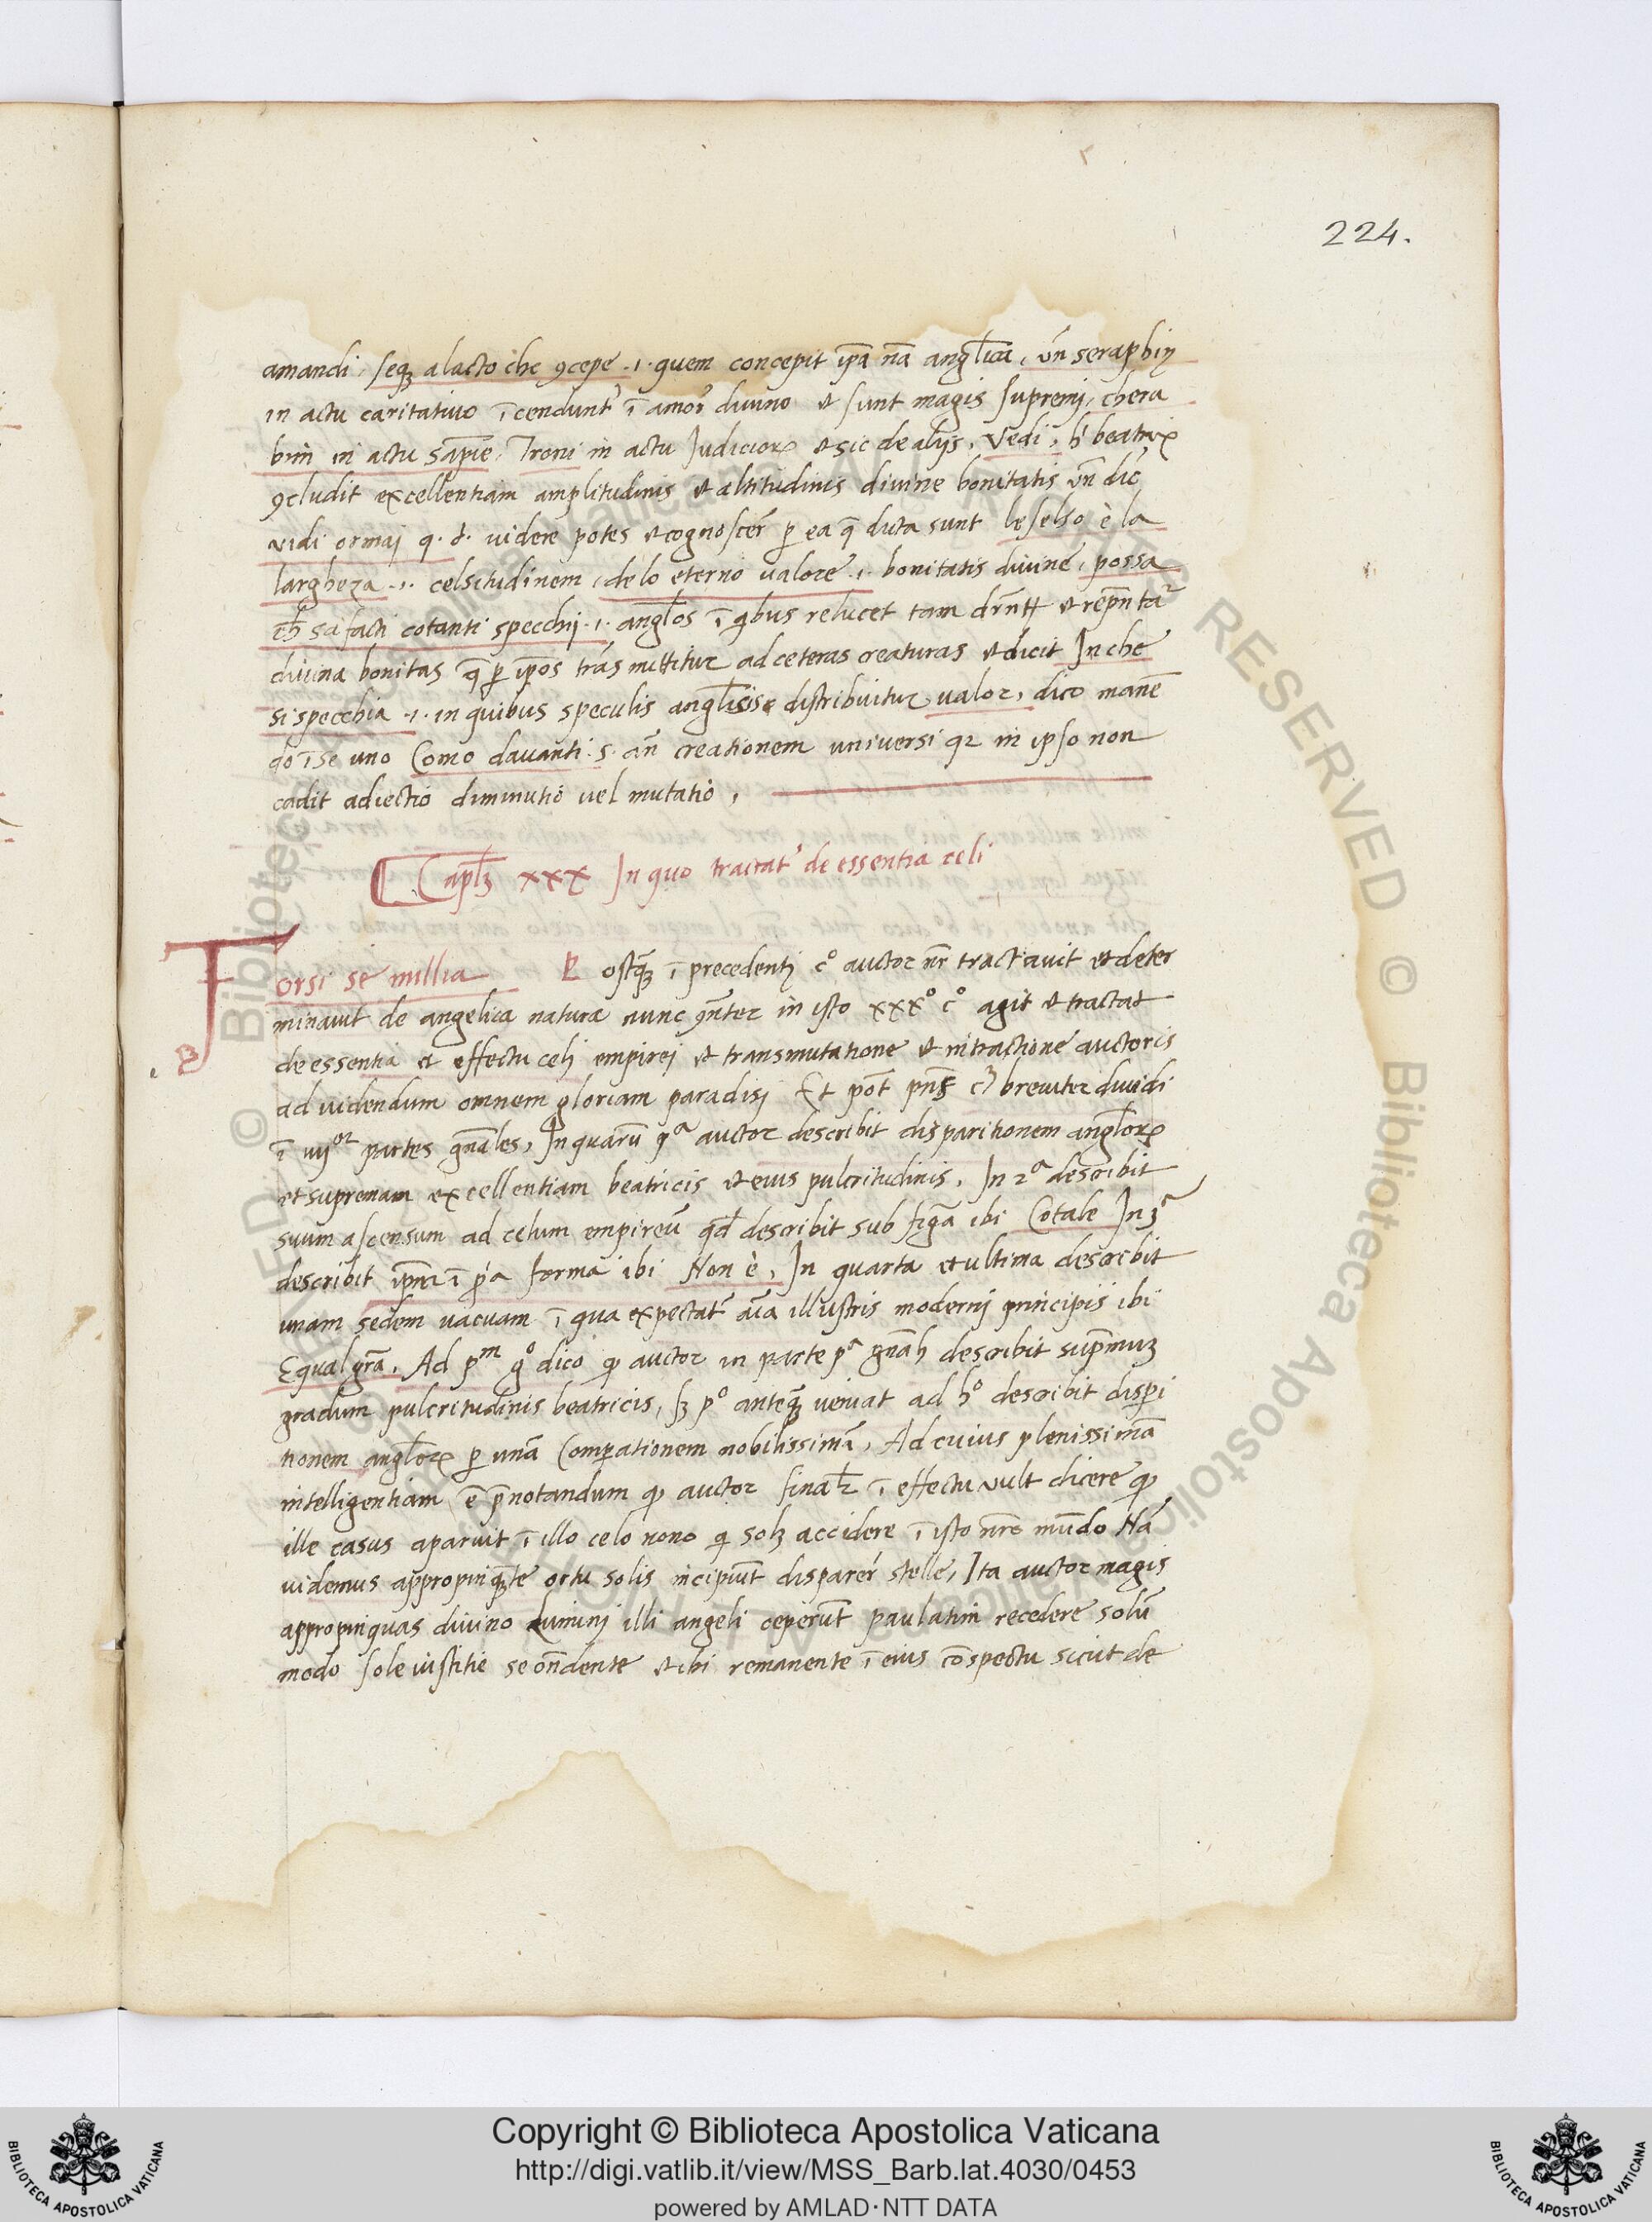 224.
amandi, seq₃ alacto che ꝯcepe .ı. quem concepit ip̃a nã angl̃ica, vñ seraphin
in actu caritativo ĩcendunt᷑ ĩ amor᷑ divino et sunt magis supremi, cheru
bim in actu sap̃ie, Troni in actu Judicioꝝ et sic de alijs, Vedi, h᷑ beatrix
ꝯcludit excellentiam amplitudinis et altitudinis divine bonitatis vñ dic̃
vidi ormaj q. d. videre potes et cognoscer᷑ ꝑ ea q̃ dicta sunt leselso è la
largheza .ı. celsitudinem, de lo eterno valore .ı. bonitatis divine, possa
ch̃ sa facti cotanti specchij .ı. angl̃os ĩ qibus relucet tam et rep̃ntat᷑
divina bonitas q̃ ꝑ ip̃os trãs mittitur ad ceteras creaturas et dicit In che
si specchia .ı. in quibus speculis angl̃icis distribuitur valor, dico manẽ
do ĩ se uno Como davanti .s. añ creationem universi qz in ipso non
cadit adiectio diminutio vel mutatio,
Capl̃₃ xxx In quo tractat᷑ de essentia celi
Forsi se millia Postq̃₃ ĩ precedenti c° auctor nr̃ tractavit et deter
minavit de angelica natura nunc ꝯñter in isto xxx° c° agit et tractat
de essentia et effectu celi empirei et transmutatione et intractione auctoris
ad videndum omnem gloriam paradisi Et pot̃ pñs c₃ breviter dividi
ĩ iiij᷑ partes gñales, In quarũ pª auctor describit disparitionem angl̃oꝝ
et supremam excellentiam beatricis et eius pulcritudinis, In 2ª describit
suum ascensum ad celum empireũ qd̃ describit sub figã ibi Cotale In 3ª
describit ip̃m ĩ p̃a forma ibi Non è, In quarta et ultima describit
unam sedem vacuam ĩ qua expectat᷑ aĩa illustris moderni principis ibi
Equal grã, Ad pᵐ g° dico qɔ auctor in parte pª gñali describit sup̃mu₃
gradum pulcritudinis beatricis, s₃ p° anteq̃₃ veniat ad h° describit dispi
tionem angl̃oꝝ ꝑ unã Comperationem nobilissimã, Ad cuius plenissimã
intelligentiam ẽ p̃notandum qɔ auctor final᷑r ĩ effectu vult dicere qɔ
ille casus aparuit ĩ illo celo nono qi sol₃ accidere ĩ isto nrõ mũdo Nã
videmus appropinq̃te ortu solis incipiũt disparer᷑ stelle, Ita auctor magis
appropinquas divino Lumini illi angeli ceperũt paulatim recedere solũ
modo sole iustitie se oñdente et ibi remanente ĩ eius cõspectu sicut de
Copyright © Biblioteca Apostolica Vaticana
http://digi.vatlib.it/view/MSS_Barb.lat.4030/0453
powered by AMLAD·NTT DATA
BIBLIOTECA APOSTOLICA VATICANA
BIBLIOTECA APOSTOLICA VATICANA